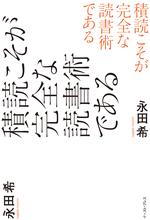 積読こそが
完全な
読書術
である
永田希
積読こそが
完全な
読書術
である
永田希
イースト・プレス